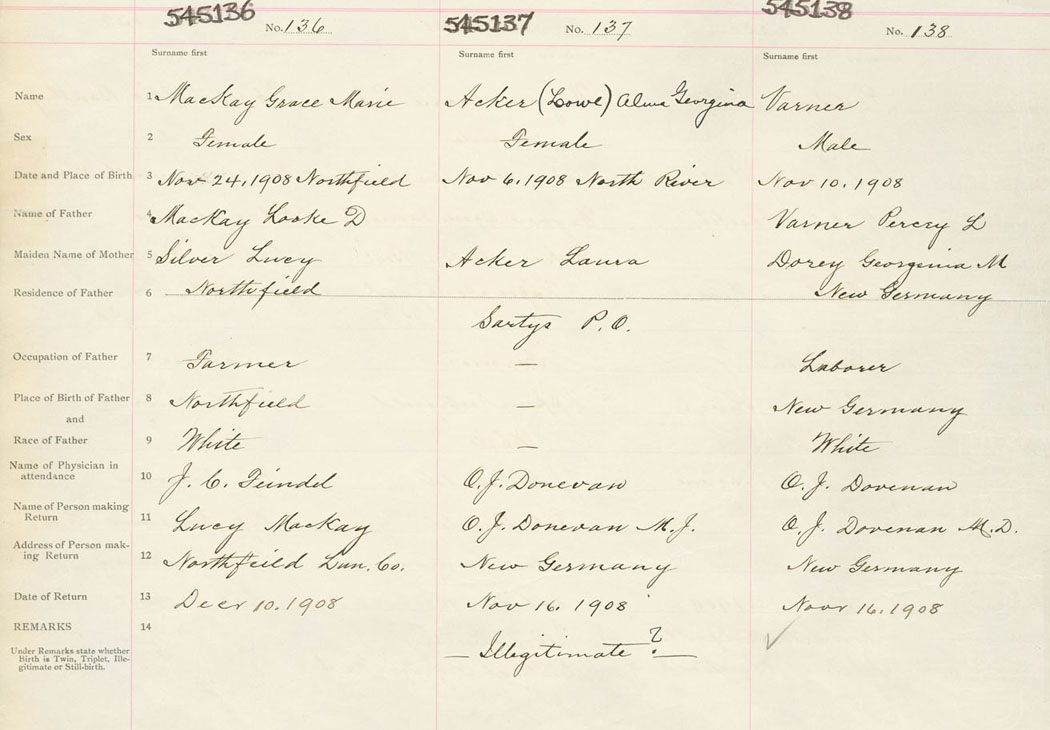 545136 No. 136 545137 No. 137 545138 No. 138
Surname first Surname first Surname first
Name 1 MacKay Grace Marie Acker (Lowe) Alma Georgina Varner
Sex 2 Female Female Male
Date and Place of Birth 3 Nov 24, 1908 Northfield Nov 6. 1908 North River Nov 10. 1908
Name of Father 4 MacKay Locke D Varner Percey L
Maiden Name of Mother 5 Silver Lucy Acker Laura Dorey Georginia M
Residence of Father 6 Northfield New Germany
P. O.
Occupation of Father 7 Farmer — Laborer
Place of Birth of Father 8 Northfield — New Germany
and
Race of Father 9 White — White
Name of Physician in
attendance 10 J. C. O. J. Donevan O. J. Dovenan
Name of Person making
Return 11 Lucy MacKay O. J. Donevan M. J. O. J. Dovenan M. D.
Address of Person mak-
ing Return 12 Northfeild Lun. Co. New Germany New Germany
Date of Return 13 Decr 10. 1908 Nov 16. 1908 Novr 16. 1908
REMARKS 14
Under Remarks state whether
Birth is Twin, Triplet, Ille-
gitimate or Still-birth.
— Illegitimate ? —